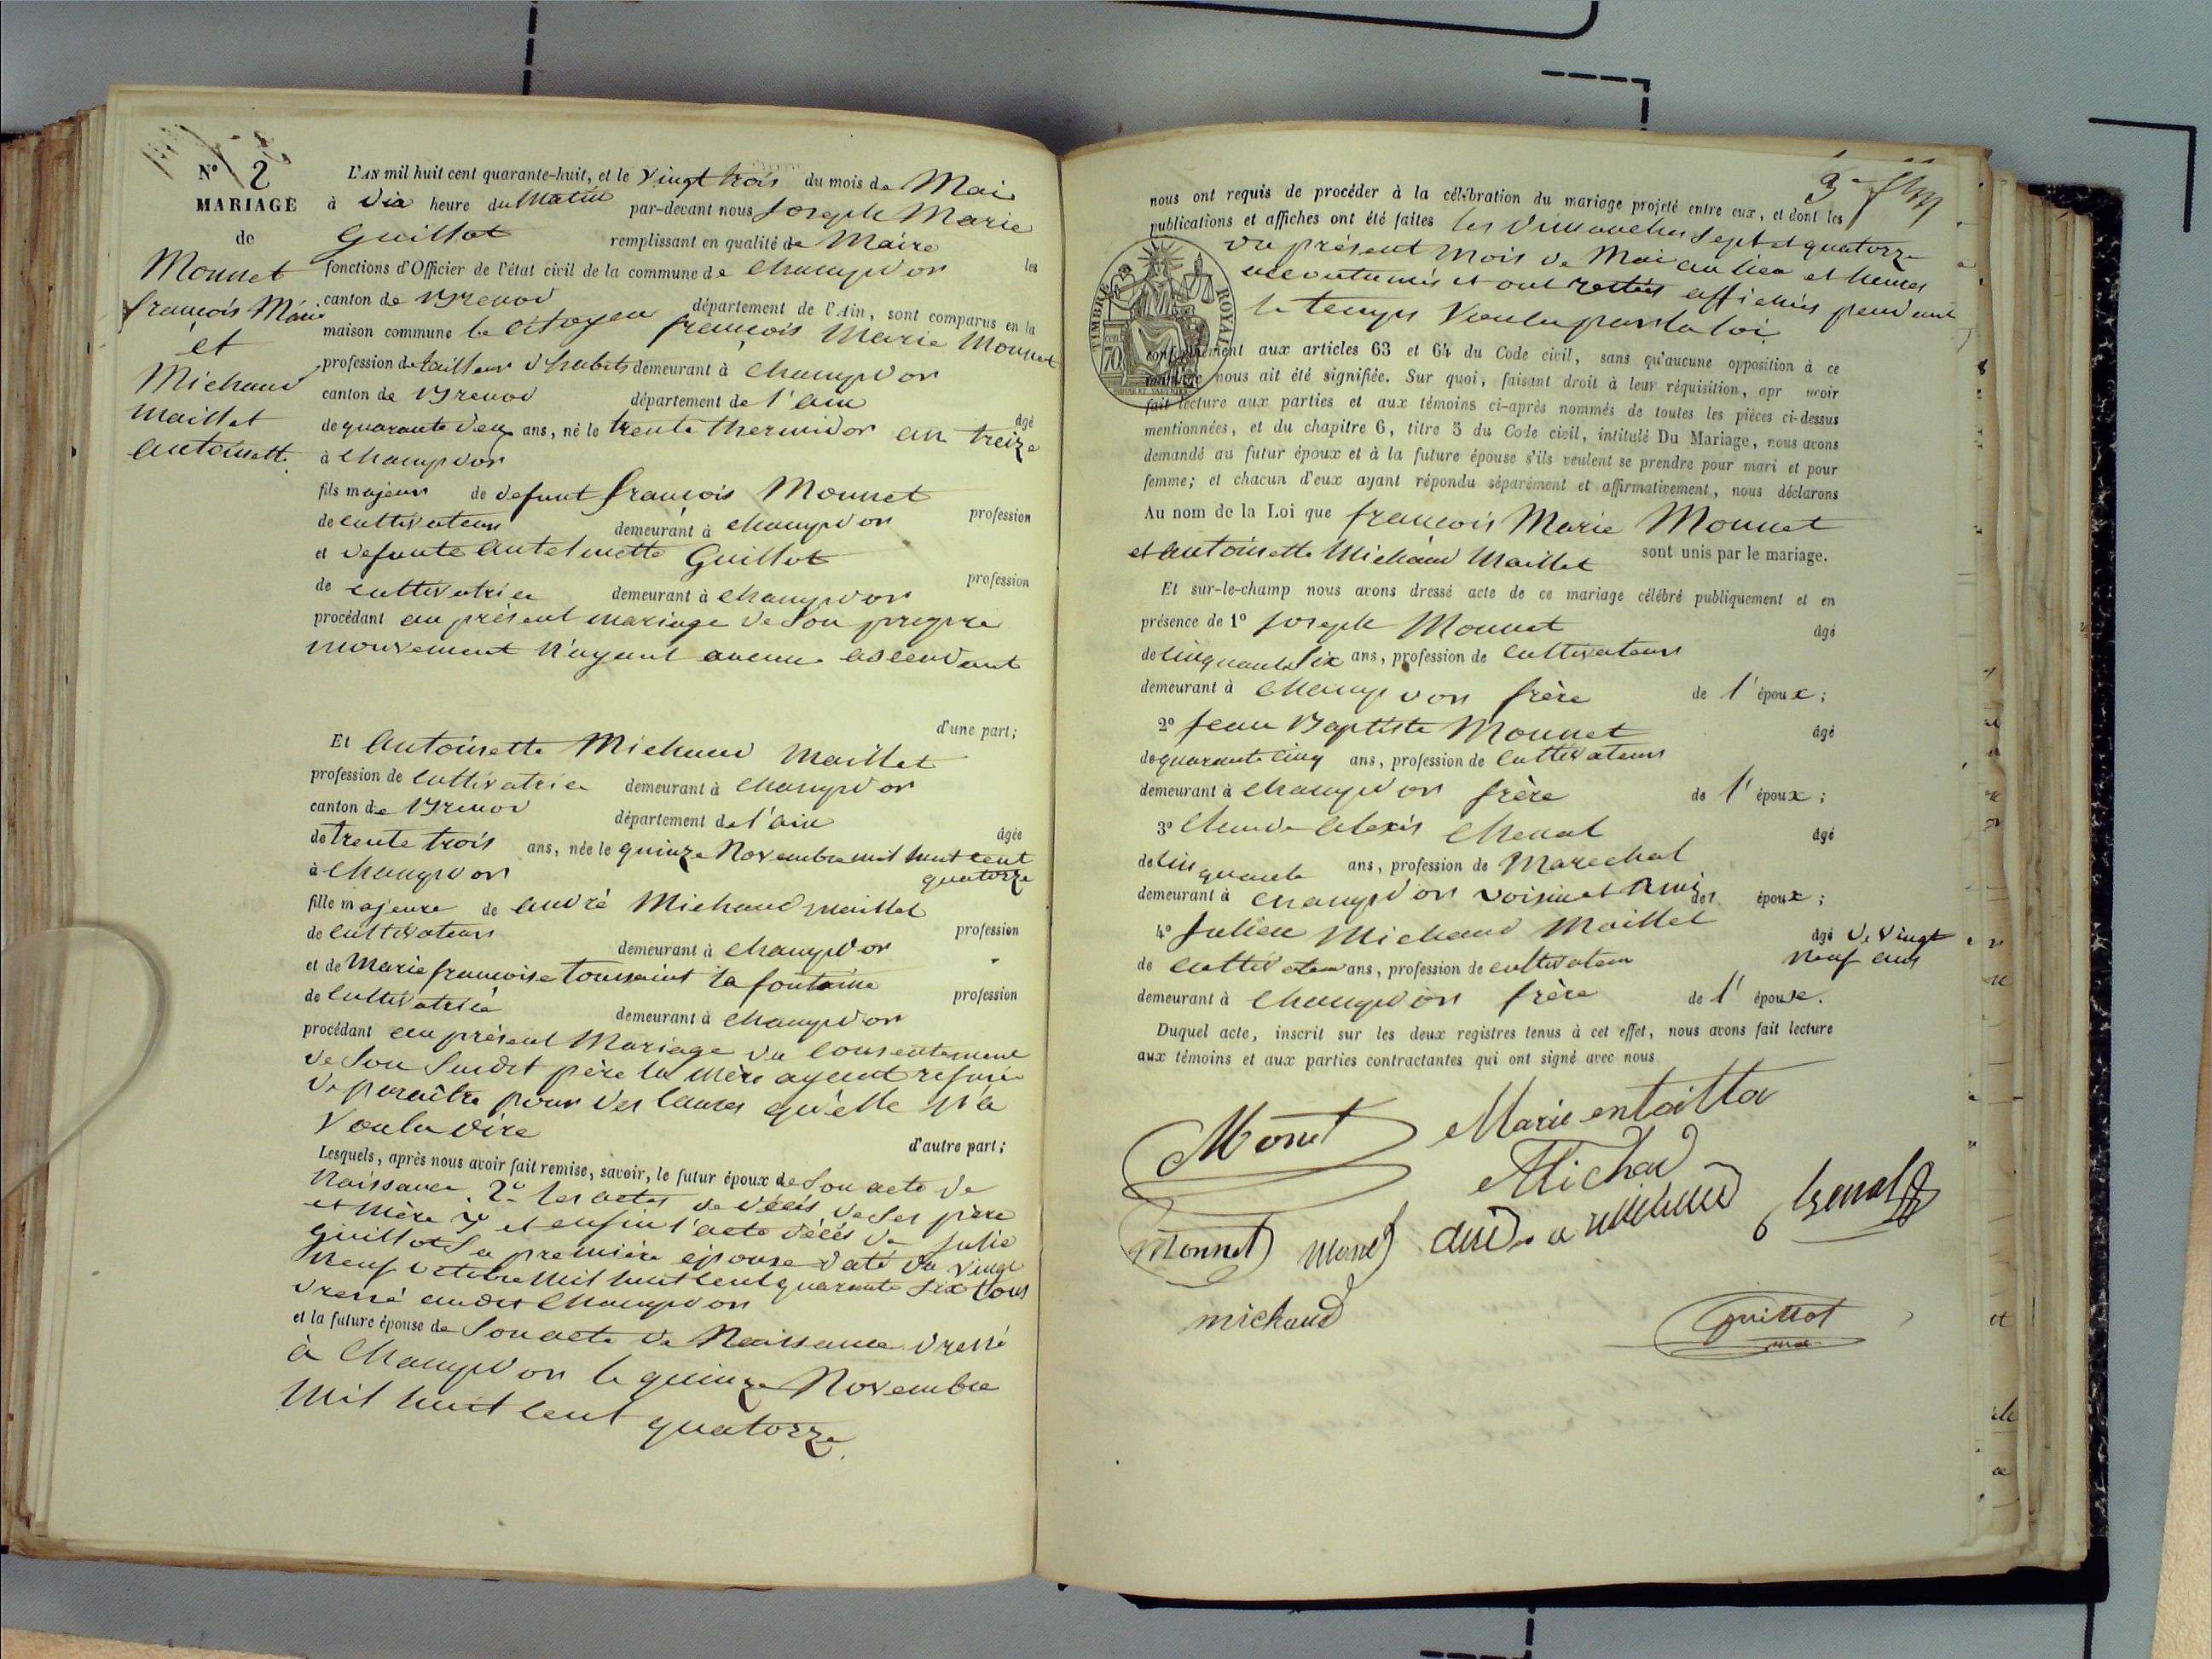 N° 2
MARIAGE
de
Monnet
françois Marie
et
Michaud
maillet
antoinette.
L'AN mil huit cent quarante-huit, et le vingt trois du mois de Mai
à dix heure du Matin par-devant nous Joseph Marie
Guillot remplissant en qualité de Maire les
fonctions d'Officier de l'état civil de la commune de Champdor
canton de Brenod département de l'Ain, sont comparus en la
maison commune le citoyen françois Marie Monnet
profession de tailleur d'habits demeurant à Champdor
canton de Brenod département de l'ain âgé
de quarante deux ans, né le trente thermidor an treize
à Champdor
fils majeur de defunt françois Monnet profession
de cultivateur demeurant à Champdor
et defunte antelmette Guillot profession
de cultivatrice demeurant à Champdor
procédant au présent mariage de Son propre
mouvement n'ayant aucun ascendant
d'une part;
Et antoinette Michaud Maillet
profession de cultivatrice demeurant à Champdor
canton de Brenod département de l'ain âgée
de trente trois ans, née le quinze Novembre mil huit cent
quatorze
à Champdor
fille majeure de andré Michaud maillet profession
de cultivateur demeurant à Champdor
et de Marie francoise toussaint la fontaine profession
de cultivatrice demeurant à Champdor
procédant au présent Mariage du consentement
de Son Sudit père la mère ayant refusé
de paraître pour des causes qu'elle n'a
Voulu dire
d'autre part;
Lesquels, après nous avoir fait remise, savoir, le futur époux de Son acte de
Naissance. 2° les actes de décès de Ses père
et mère et enfin l'acte décés de Julie
Guillot Sa première épouse daté du vingt
neuf octobre mil huit cent quarante Six tous
dressé audit Champdor
et la future épouse de Son acte de Naissance dressé
à Champdor le quinze Novembre
Mil huit cent quatorze.
3
nous ont requis de procéder à la célébration du mariage projeté entre eux, et dont les
publications et affiches ont été faites les dimanches Sept et quatorze
du présent mois de Mai au lieu et heures
accoutumés et ont restés affichés pendant
le temps Voulu par la loi
TIMBRE ROYAL
70
conformément aux articles 63 et 64 du Code civil, sans qu'aucune opposition à ce
mariage nous ait été signifiée. Sur quoi, faisant droit à leur réquisition, apr avoir
fait lecture aux parties et aux témoins ci-après nommés de toutes les pièces ci-dessus
mentionnées, et du chapitre 6, titre 5 du Code civil, intitulé Du Mariage, nous avons
demandé au futur époux et à la future épouse s'ils veulent se prendre pour mari et pour
femme; et chacun d'eux ayant répondu séparément et affirmativement, nous déclarons
Au nom de la Loi que françois Marie Monnet
et antoinette Michaud Maillet sont unis par le mariage.
Et sur-le-champ nous avons dressé acte de ce mariage célébré publiquement et en
présence de 1° Joseph Monnet âgé
de cinquante Six ans, profession de cultivateur
demeurant à Champdor frère de l'époux;
2° Jean Baptiste Monnet âgé
de quarante cinq ans, profession de cultivateur
demeurant à Champdor frère de l'époux;
3° Claude alexis Chenal âgé
de cinquante ans, profession de Marechal
demeurant à Champdor voisin et Ami des époux;
4° Julien Michaud Maillet âgé de vingt
neuf ans
de cultivateur ans, profession de cultivateur
demeurant à Champdor frère de l'épouse.
Duquel acte, inscrit sur les deux registres tenus à cet effet, nous avons fait lecture
aux témoins et aux parties contractantes qui ont signé avec nous
Monet Marie entoitta
Michau
Monnet monet
michaud
Guillot